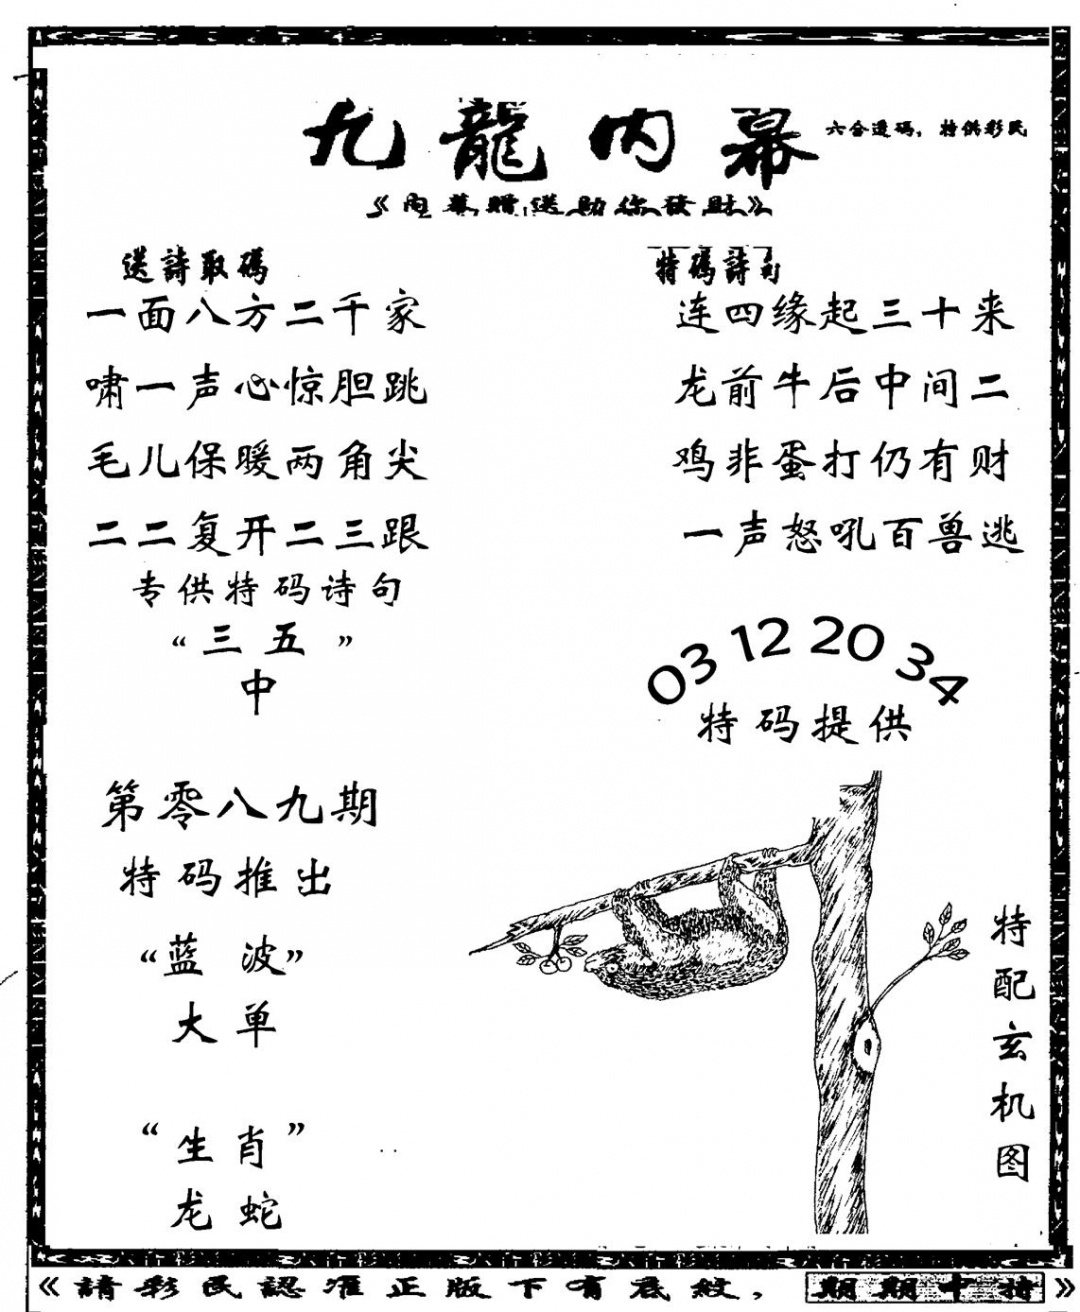 九龍内幕
六合透码，特供彩民
《内幕贈送助你發財》
送詩取碼
一面八方二千家
啸一声心惊胆跳
毛儿保暖两角尖
二二复开二三跟
专供特码诗句
“三五”
中
特碼詩句
连四缘起三十来
龙前牛后中间二
鸡非蛋打仍有财
一声怒吼百兽逃
03 12 20 34
特码提供
第零八九期
特码推出
“蓝波”
大单
“生肖”
龙蛇
特配玄机图
《請彩民認准正版下有底紋，期期中特》